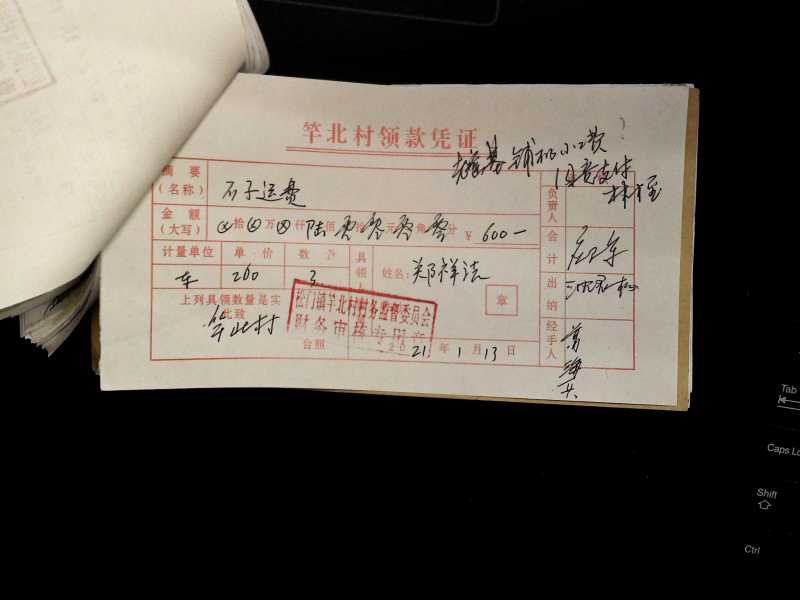 竿北村领款凭证
同意支付
摘要
(名称)
石子运费
负责人
金额
(大写)
⊗拾⊗万⊗仟陆佰零拾零元零角零分 ¥ 600—
计量单位 单价 数 具领人 姓名:郑祥法 章
会计
车 200 3
出纳
上列具领数量是实
此致
竿北村
松门镇竿北村村务监督委员会
财务审核专用章
台照
2021年1月13日
经手人
Tab
Caps Lo
Shift
Ctrl